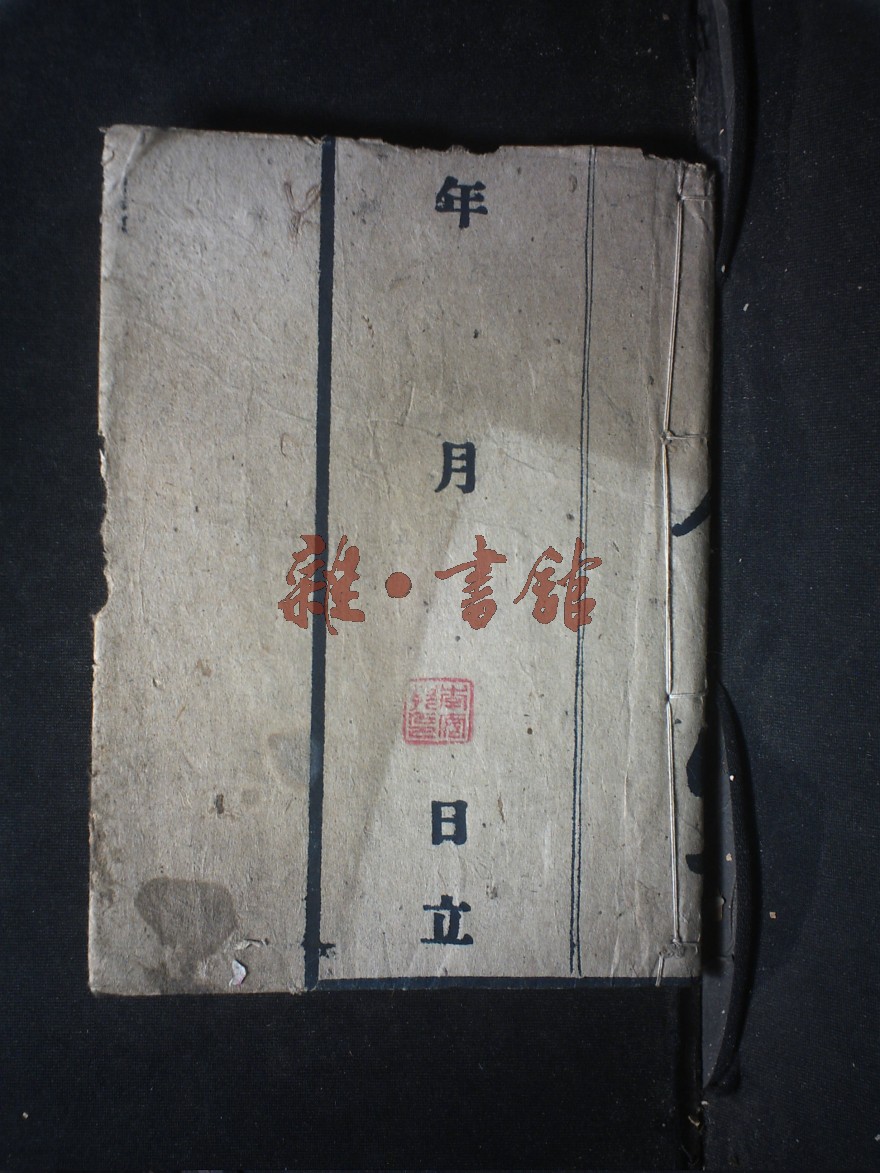 年
月
日
立
雜·書館